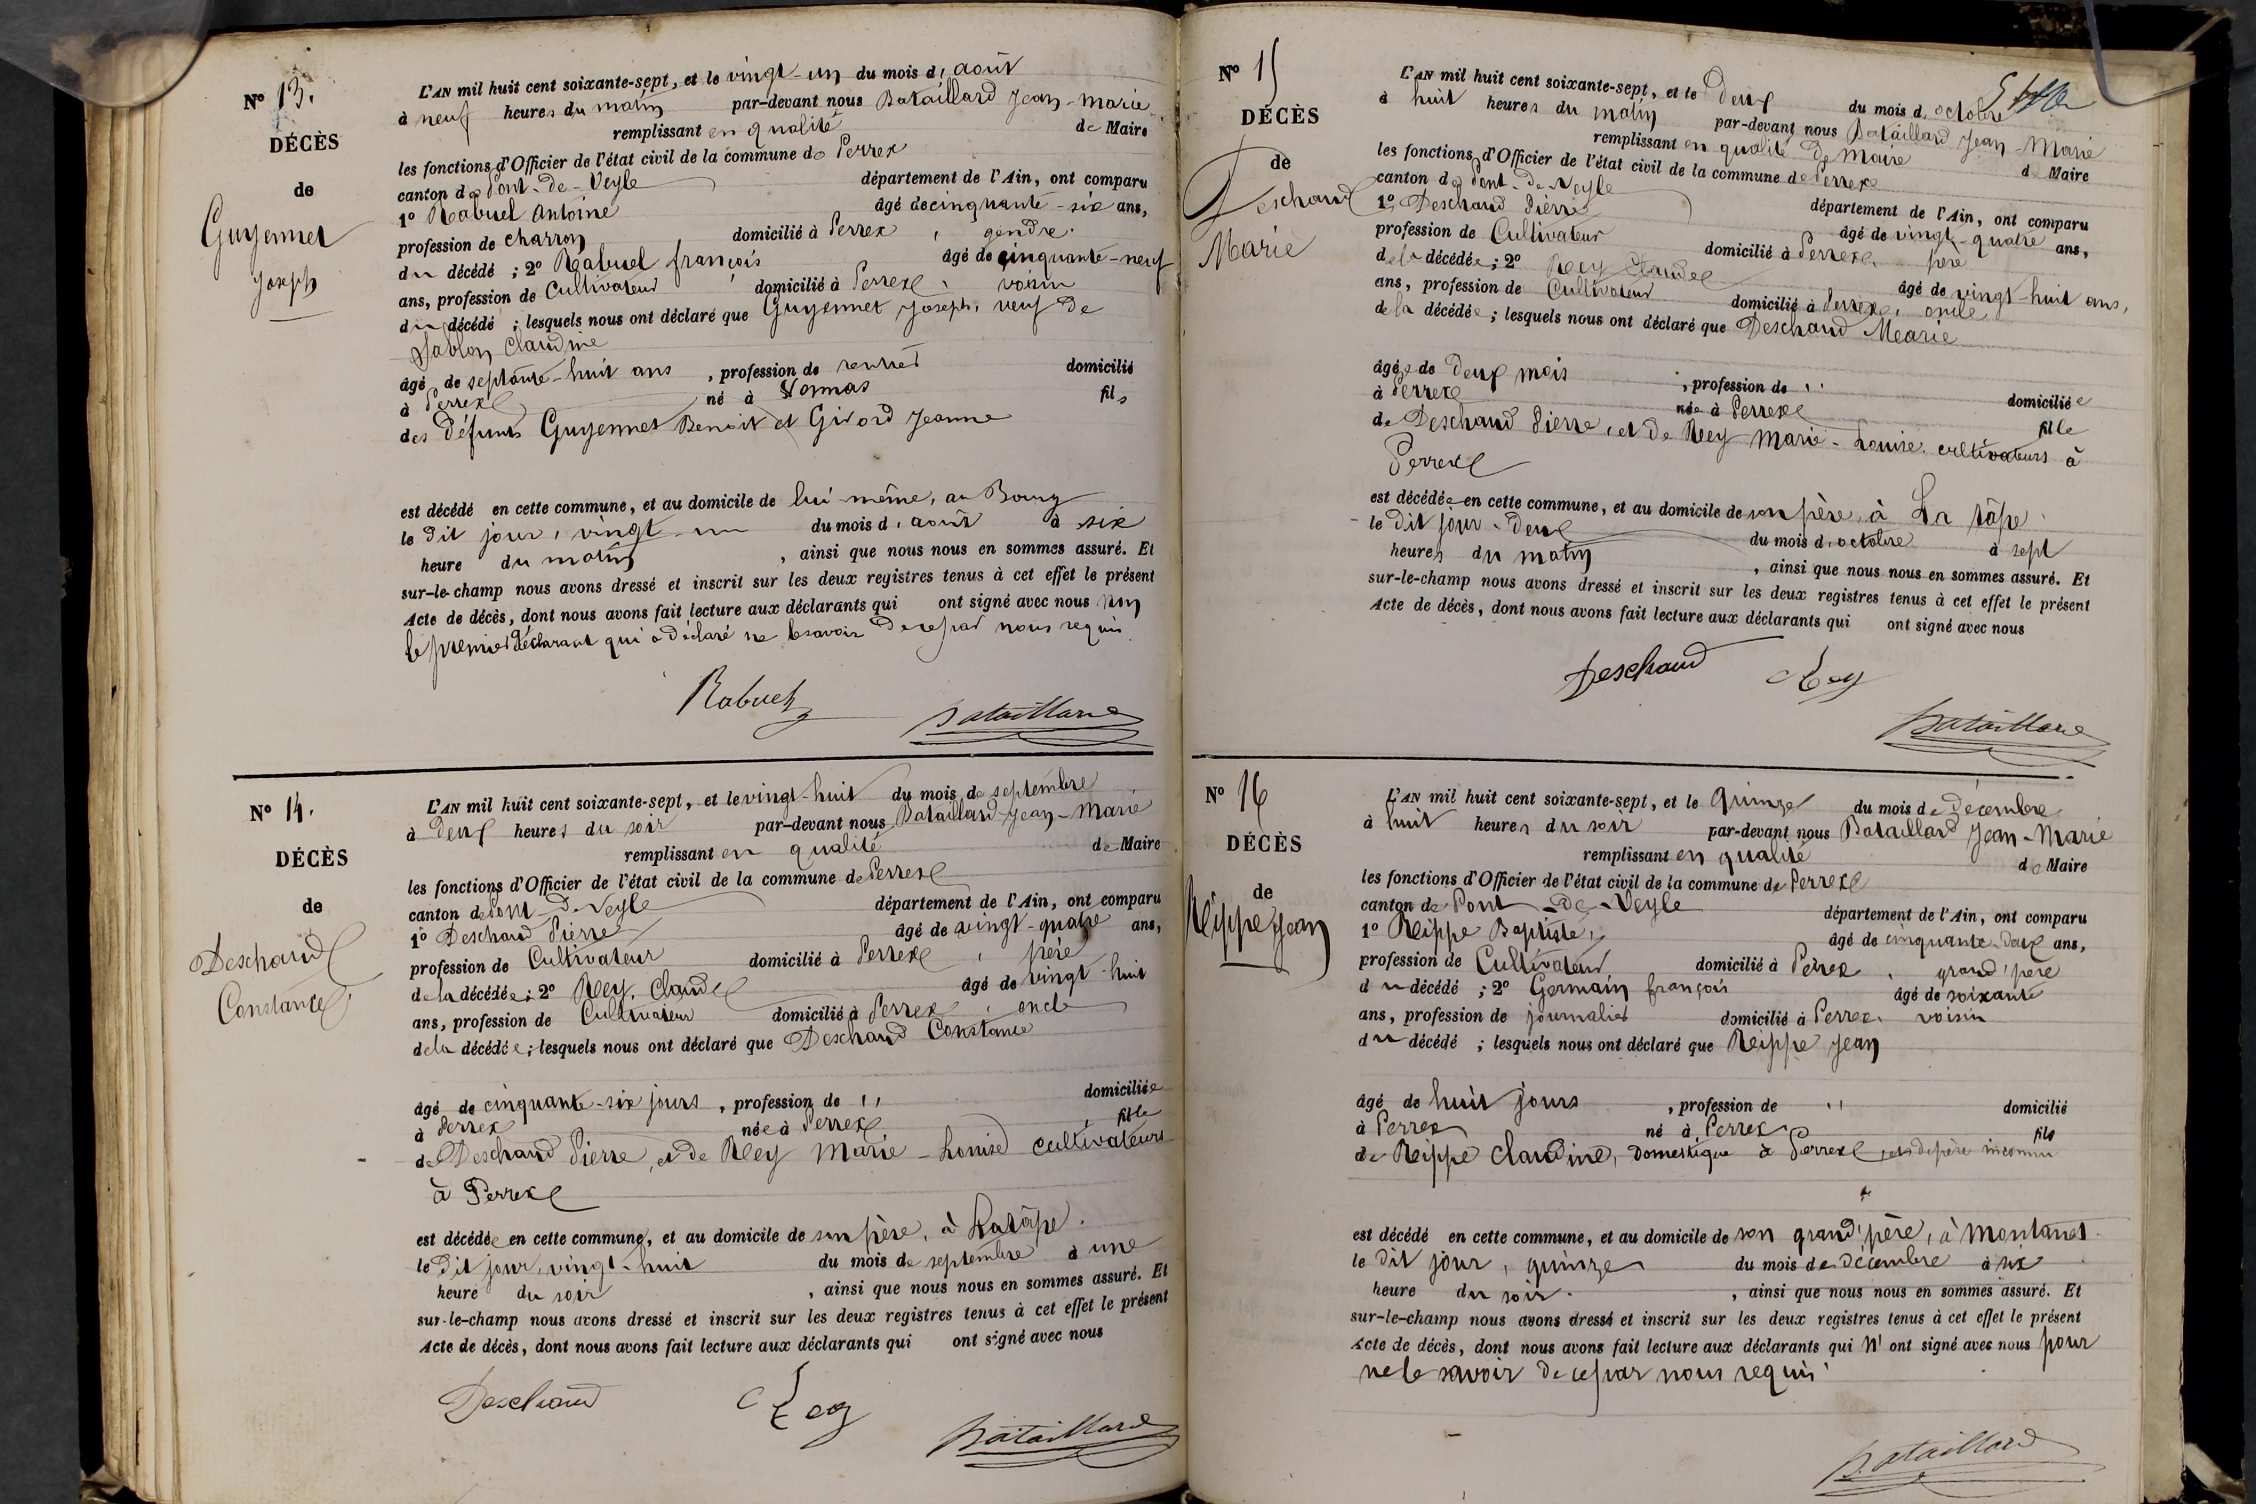 Nº 13.
DÉCÈS
de
Guyennet
Joseph
L'AN mil huit cent soixante-sept, et le vingt-un du mois d'août
à neuf heures du matin par-devant nous Bataillard Jean-Marie
remplissant en qualité de Maire
les fonctions d'Officier de l'état civil de la commune de Perrex
canton de Pont-de-Veyle département de l'Ain, ont comparu
1º Rabuel Antoine âgé de cinquante-six ans,
profession de charron domicilié à Perrex, gendre
du décédé ; 2º Rabuel françois âgé de cinquante-neuf
ans, profession de Cultivateur domicilié à Perrex, voisin
du décédé ; lesquels nous ont déclaré que Guyennet Joseph, veuf de
Sablon Claudine
âgé de septante-huit ans, profession de rentier domicilié
à Perrex né à Vonnas fils
des défunts Guyennet Benoit et Girord Jeanne
est décédé en cette commune, et au domicile de lui-même, au Bourg
le dit jour, vingt-un du mois d'août à six
heure du matin, ainsi que nous nous en sommes assuré. Et
sur-le-champ nous avons dressé et inscrit sur les deux registres tenus à cet effet le présent
Acte de décès, dont nous avons fait lecture aux déclarants qui ont signé avec nous non
le premier déclarant qui a déclaré ne le savoir de ce par nous requis.
Rabuel
Bataillard
Nº 14.
DÉCÈS
de
Deschaud
Constance
L'AN mil huit cent soixante-sept, et le vingt-huit du mois de septembre
à deux heures du soir par-devant nous Bataillard Jean-Marie
remplissant en qualité de Maire
les fonctions d'Officier de l'état civil de la commune de Perrex
canton de Pont-de-Veyle département de l'Ain, ont comparu
1º Deschaud Pierre âgé de vingt-quatre ans,
profession de Cultivateur domicilié à Perrex, père
de la décédée ; 2º Rey Claude âgé de vingt-huit
ans, profession de Cultivateur domicilié à Perrex, oncle
de la décédée ; lesquels nous ont déclaré que Deschaud Constance
âgé de cinquante-six jours, profession de " domiciliée
à Perrex née à Perrex fille
de Deschaud Pierre, et de Rey Marie-Louise cultivateurs
à Perrex
est décédée en cette commune, et au domicile de son père, à Latâpe.
le dit jour, vingt-huit du mois de septembre à une
heure du soir, ainsi que nous nous en sommes assuré. Et
sur-le-champ nous avons dressé et inscrit sur les deux registres tenus à cet effet le présent
Acte de décès, dont nous avons fait lecture aux déclarants qui ont signé avec nous
Deschaud Rey
Bataillard
Nº 15
DÉCÈS
de
Deschaud
Marie
L'AN mil huit cent soixante-sept, et le deux du mois d'octobre
à huit heures du matin par-devant nous Bataillard Jean-Marie
remplissant en qualité de Maire de Maire
les fonctions d'Officier de l'état civil de la commune de Perrex
canton de Pont-de-Veyle département de l'Ain, ont comparu
1º Deschaud Pierre âgé de vingt-quatre ans,
profession de Cultivateur domicilié à Perrex, père
de la décédée ; 2º Rey Claude âgé de vingt-huit ans,
ans, profession de Cultivateur domicilié à Perrex, oncle
de la décédée ; lesquels nous ont déclaré que Deschaud Marie
âgée de deux mois, profession de " domiciliée
à Perrex née à Perrex fille
de Deschaud Pierre, et de Rey Marie-Louise, cultivateurs à
Perrex
est décédée en cette commune, et au domicile de son père, à La tâpe
le dit jour, deux du mois d'octobre à sept
heures du matin, ainsi que nous nous en sommes assuré. Et
sur-le-champ nous avons dressé et inscrit sur les deux registres tenus à cet effet le présent
Acte de décès, dont nous avons fait lecture aux déclarants qui ont signé avec nous
Deschaud Rey
Bataillard
Nº 16
DÉCÈS
de
Reippe Jean
L'AN mil huit cent soixante-sept, et le quinze du mois de décembre
à huit heures du soir par-devant nous Bataillard Jean-Marie
remplissant en qualité de Maire
les fonctions d'Officier de l'état civil de la commune de Perrex
canton de Pont-de-Veyle département de l'Ain, ont comparu
1º Reippe Baptiste, âgé de cinquante-deux ans,
profession de Cultivateur domicilié à Perrex, grand'père
du décédé ; 2º Germain françois âgé de soixante
ans, profession de journalier domicilié à Perrex, voisin
du décédé ; lesquels nous ont déclaré que Reippe Jean
âgé de huit jours, profession de " domicilié
à Perrex né à Perrex fils
de Reippe Claudine, domestique à Perrex, et de père inconnu
est décédé en cette commune, et au domicile de son grand'père, à Montanet
le dit jour, quinze du mois de décembre à six
heure du soir, ainsi que nous nous en sommes assuré. Et
sur-le-champ nous avons dressé et inscrit sur les deux registres tenus à cet effet le présent
Acte de décès, dont nous avons fait lecture aux déclarants qui n'ont signé avec nous pour
ne le savoir de ce par nous requis
Bataillard